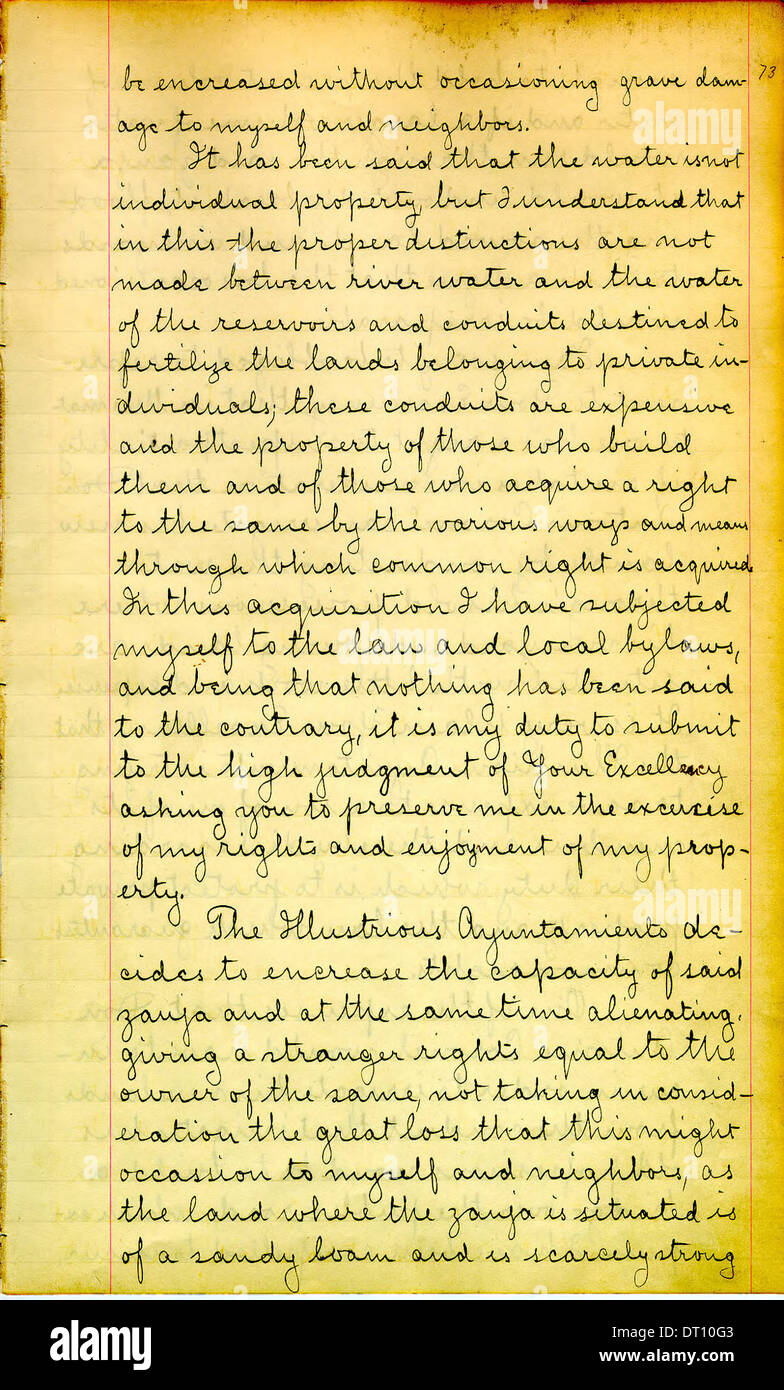 73
be encreased without occasioning grave dam-
age to myself and neighbors.
It has been said that the water is not
individual property, but I understand that
in this the proper distinctions are not
made between river water and the water
of the reservoirs and conduits destined to
fertilize the lands belonging to private in-
dividuals; these conduits are expensive
and the property of those who build
them and of those who acquire a right
to the same by the various ways and means
through which common right is acquired.
In this acquisition I have subjected
myself to the law and local bylaws,
and being that nothing has been said
to the contrary, it is my duty to submit
to the high judgment of Your Excellency
asking you to preserve me in the excercise
of my rights and enjoyment of my prop-
erty.
The Illustrious Ayuntamiento de-
cides to encrease the capacity of said
zanja and at the same time alienating,
giving a stranger rights equal to the
owner of the same, not taking in consid-
eration the great loss that this might
occassion to myself and neighbors, as
the land where the zanja is situated is
of a sandy loam and is scarcely strong
alamy
Image ID: DT10G3
www.alamy.com